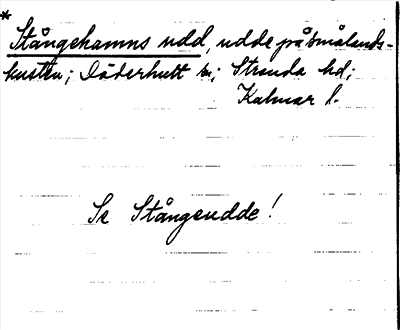 *
Stångehamns udd, udde på Smålands-
kusten; Döderhult sn; Stranda hd;
Kalmar l.
Se Stångeudde!